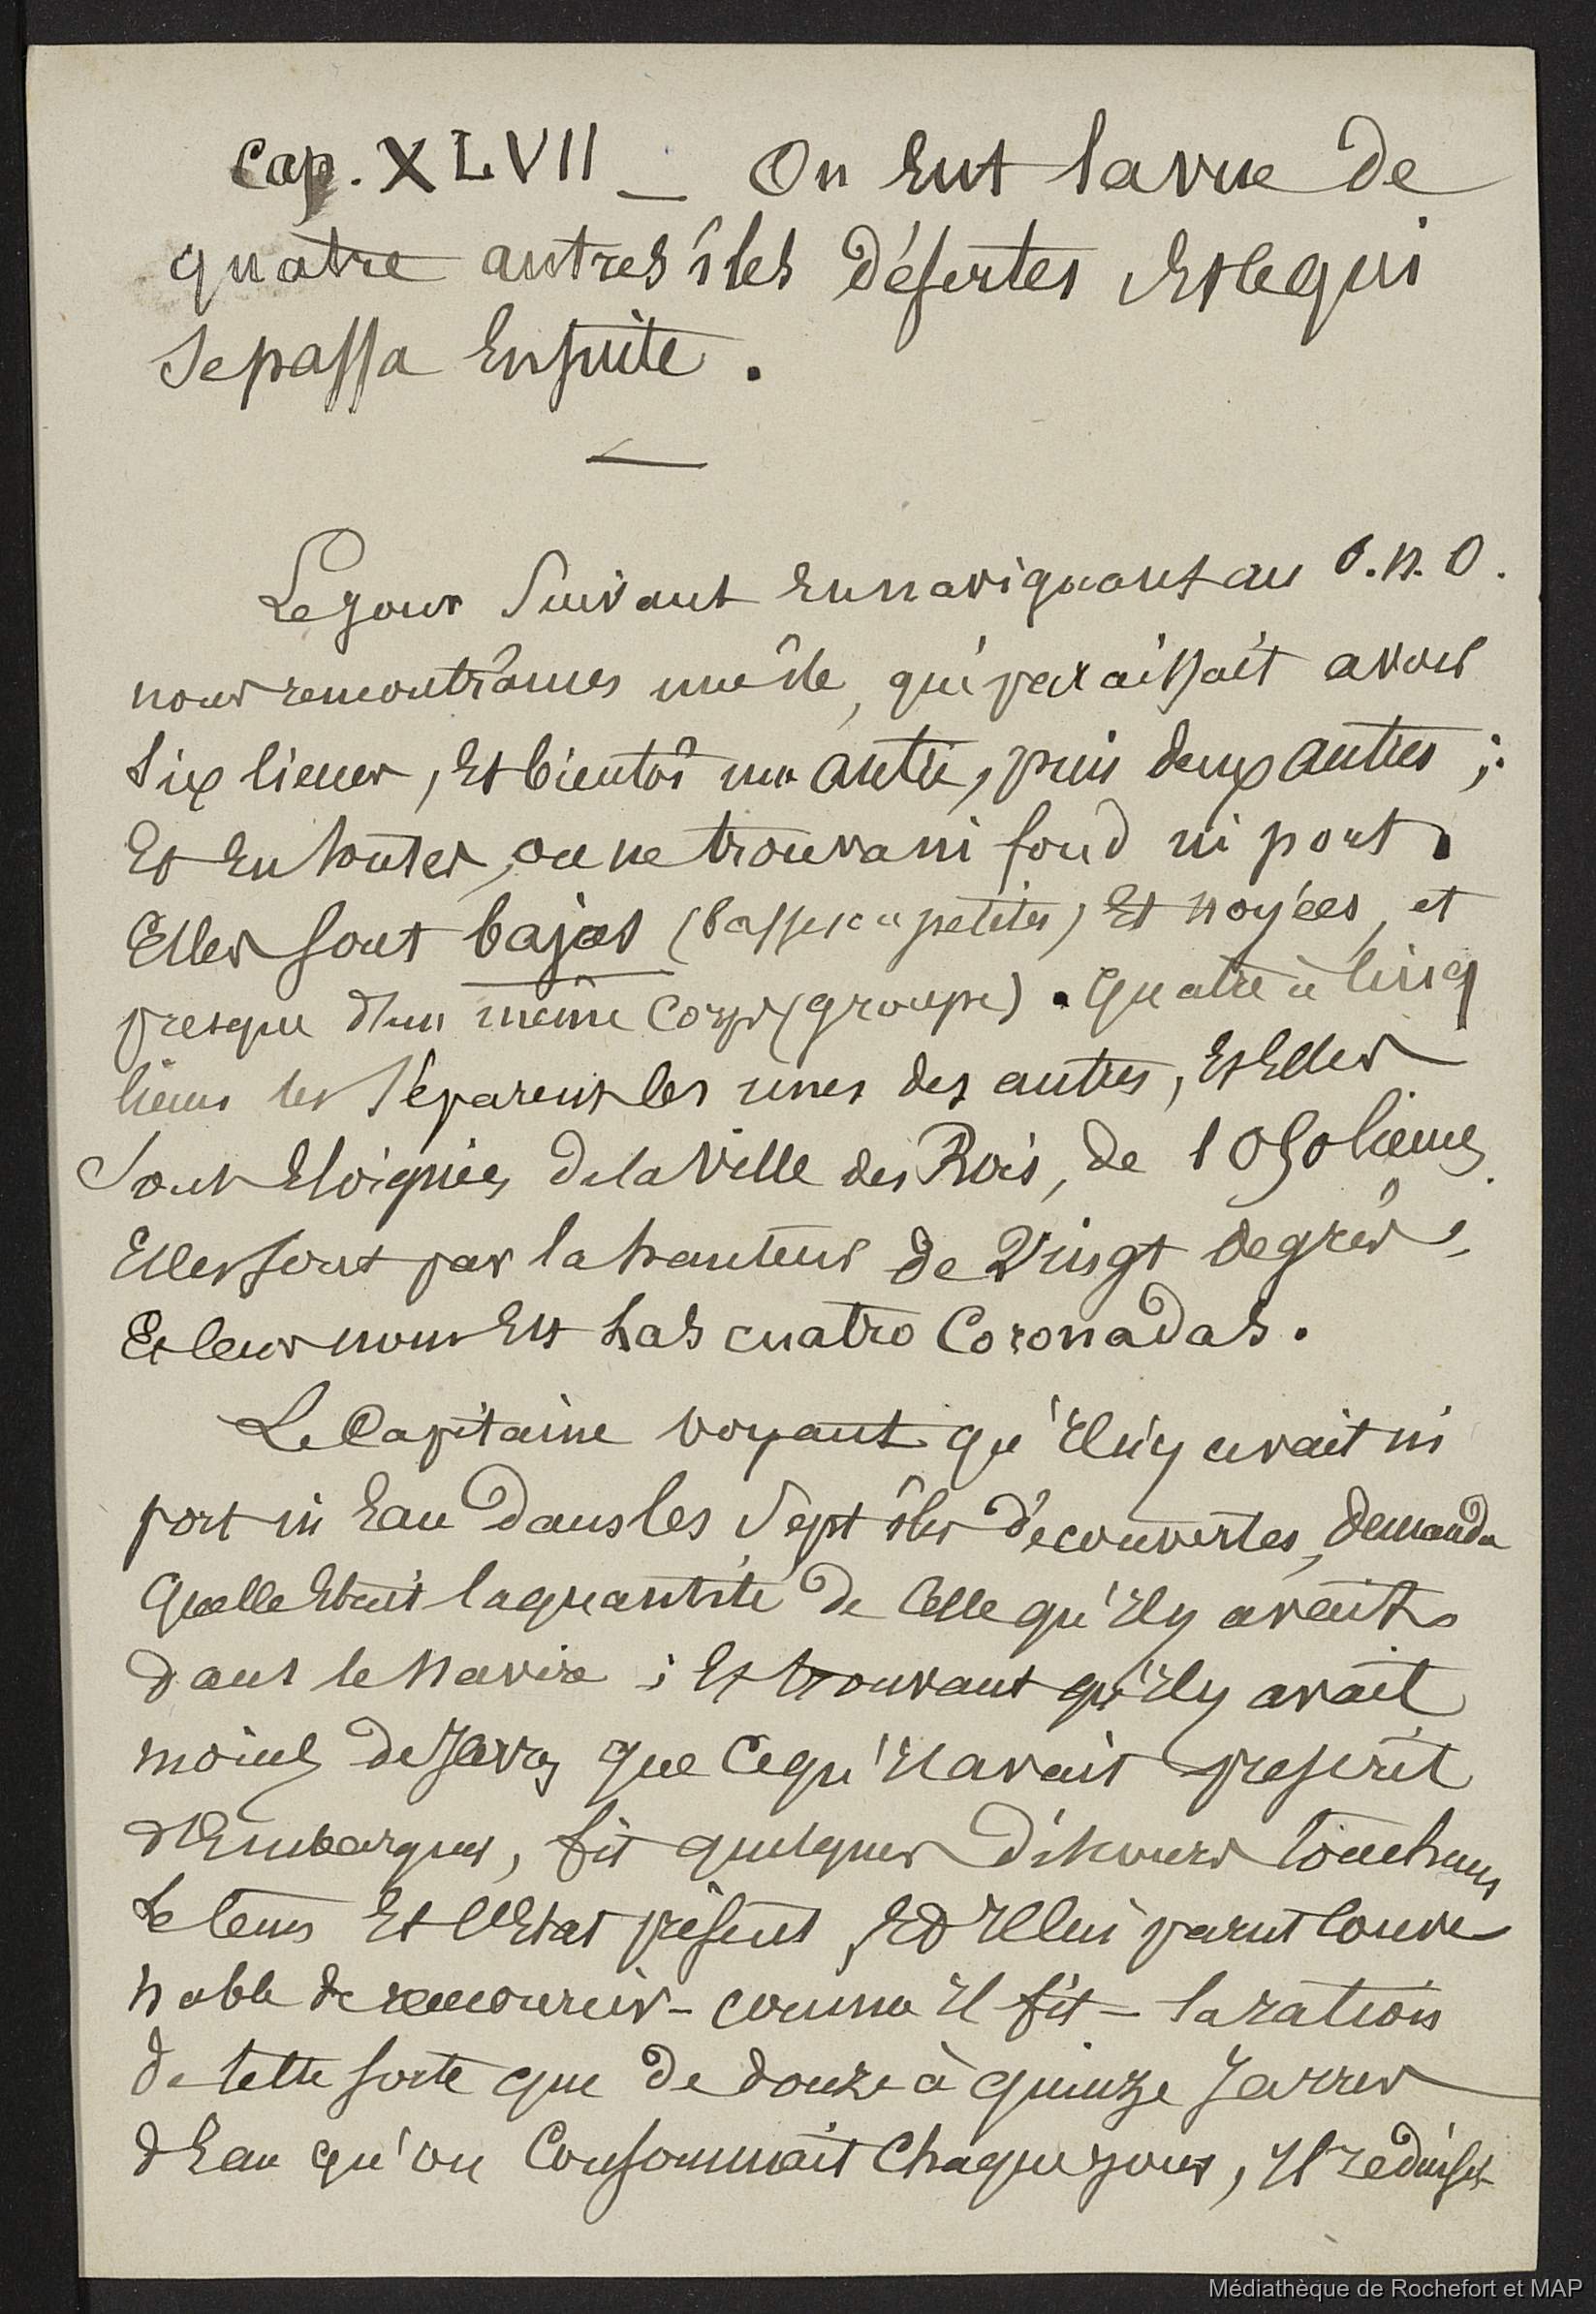 Cap. XLVII _ On Eut la vue de
quatre autres îles désertes Et ce qui
se passa Ensuite .
Le jour Suivant En navigant au O.N.O.
nous rencontrâmes une île, qui paraissait avoir
Six lieues, Et bientôt un autre, puis deux autres ;
Et En toutes, on ne trouva ni fond ni port.
Elles sont bajas (basses ou petites) Et noyées, et
presque d'un même Corps (groupe). Quatre à Cinq
lieues les Séparent les unes des autres, Et Elles
Sont Eloignées de la Ville des Rois, de 1050 lieues.
Elles sont par la hauteur de Vingt degrés,
Et leur nom Est Las cuatro Coronadas.
Le Capitaine voyant qu'Il n'y avait ni
port ni Eau dans les Sept îles découvertes, demanda
Quelle Etait la quantité de Celle qu'Il y avait
dans le Navire ; Et trouvant qu'Il y avait
moins de Jarres que Ce qu'Il avait prescrit
d'Embarquer, fit quelques discours touchant
Le tems Et l'Etat présent, Et Il lui parut Conve
nable de raccourcir - comme Il fit - la ration
de telle sorte que de douze à quinze Jarres
d'Eau qu'on Consommait Chaque jour, Il réduisit
Médiathèque de Rochefort et MAP